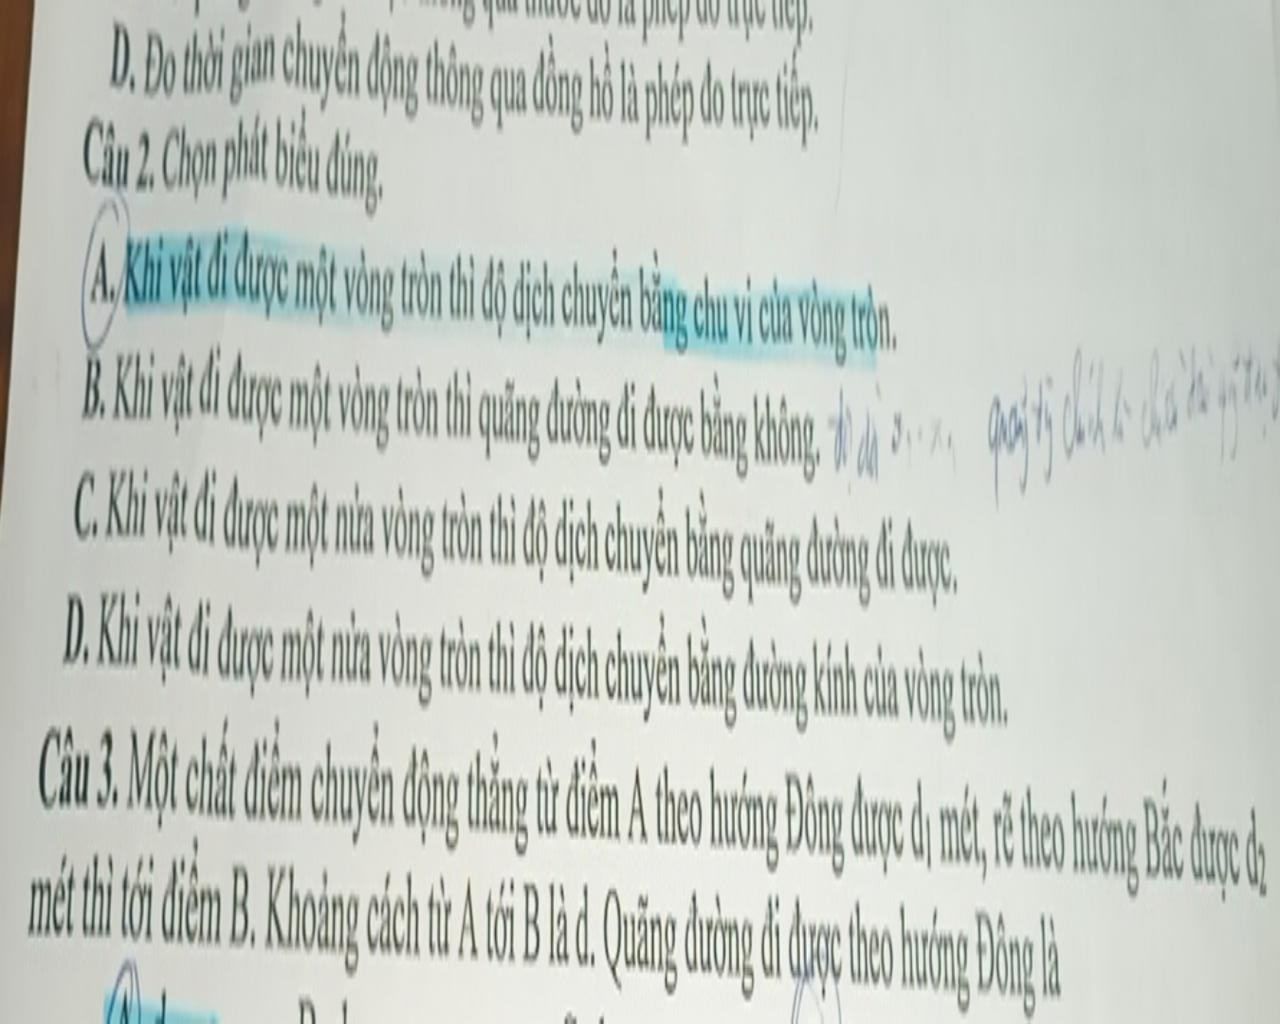 qua thước đo là phép đo trực tiếp.
D. Đo thời gian chuyển động thông qua đồng hồ là phép đo trực tiếp.
Câu 2. Chọn phát biểu đúng.
A. Khi vật đi được một vòng tròn thì độ dịch chuyển bằng chu vi của vòng tròn.
B. Khi vật đi được một vòng tròn thì quãng đường đi được bằng không.
C. Khi vật đi được một nửa vòng tròn thì độ dịch chuyển bằng quãng đường đi được.
D. Khi vật đi được một nửa vòng tròn thì độ dịch chuyển bằng đường kính của vòng tròn.
Câu 3. Một chất điểm chuyển động thẳng từ điểm A theo hướng Đông được d₁ mét, rẽ theo hướng Bắc được d₂
mét thì tới điểm B. Khoảng cách từ A tới B là d. Quãng đường đi được theo hướng Đông là